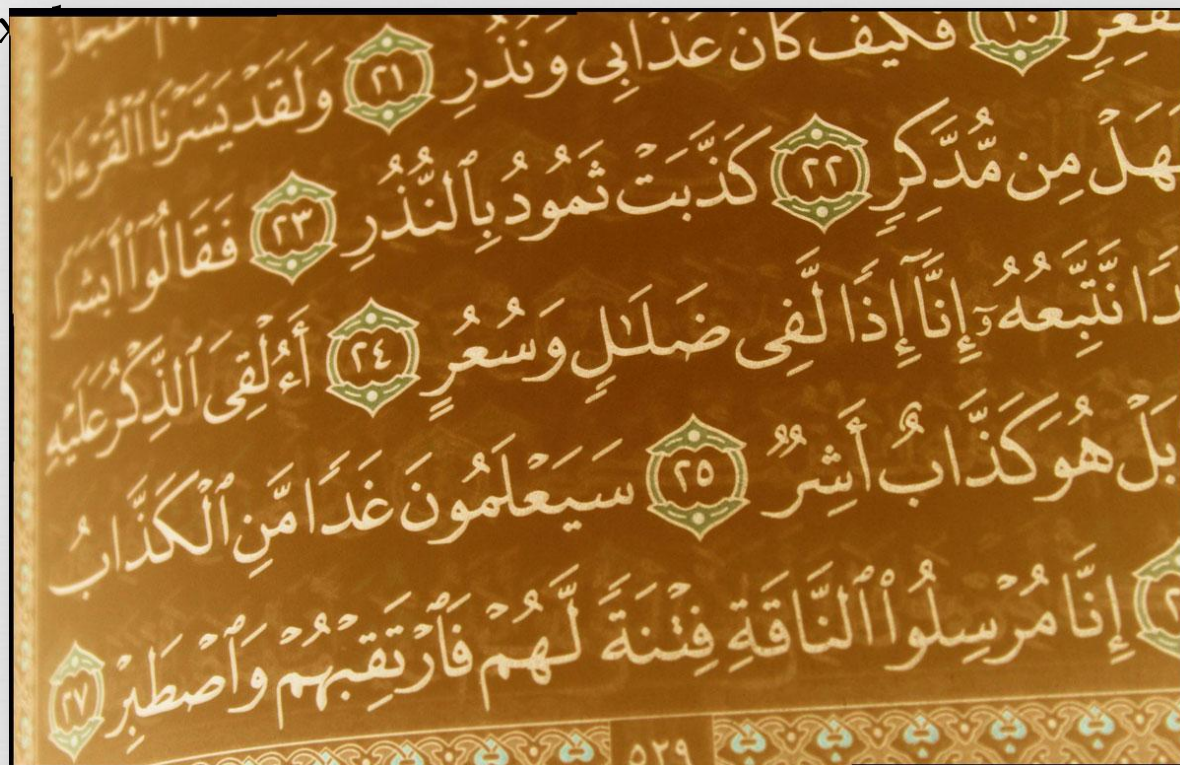 فَكَيْفَ كَانَ عَذَابِى وَنُذُرِ ٢١ وَلَقَدْ يَسَّرْنَا ٱلْقُرْءَانَ
هَلْ مِن مُّدَّكِرٍ ٢٢ كَذَّبَتْ ثَمُودُ بِٱلنُّذُرِ ٢٣ فَقَالُوٓا۟ أَبَشَرًا
نَّتَّبِعُهُۥٓ إِنَّآ إِذًا لَّفِى ضَلَـٰلٍ وَسُعُرٍ ٢٤ أَءُلْقِىَ ٱلذِّكْرُ عَلَيْهِ
بَلْ هُوَ كَذَّابٌ أَشِرٌ ٢٥ سَيَعْلَمُونَ غَدًا مَّنِ ٱلْكَذَّابُ
إِنَّا مُرْسِلُوا۟ ٱلنَّاقَةِ فِتْنَةً لَّهُمْ فَٱرْتَقِبْهُمْ وَٱصْطَبِرْ ٢٧
٥٢٩